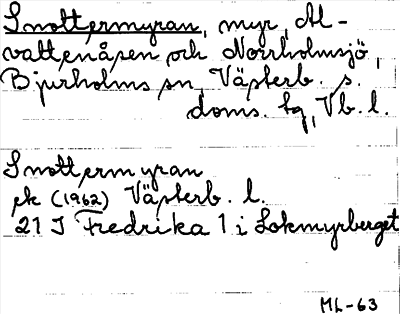 Snottermyran, myr, Al-
vattenåsen och Norrholmsjö,
Bjurholms sn, Västerb. s.
doms. tg, Vb. l.
Snottermyran
ek (1962) Västerb. l.
21 J Fredrika 1 i Lokmyrberget
ML-63